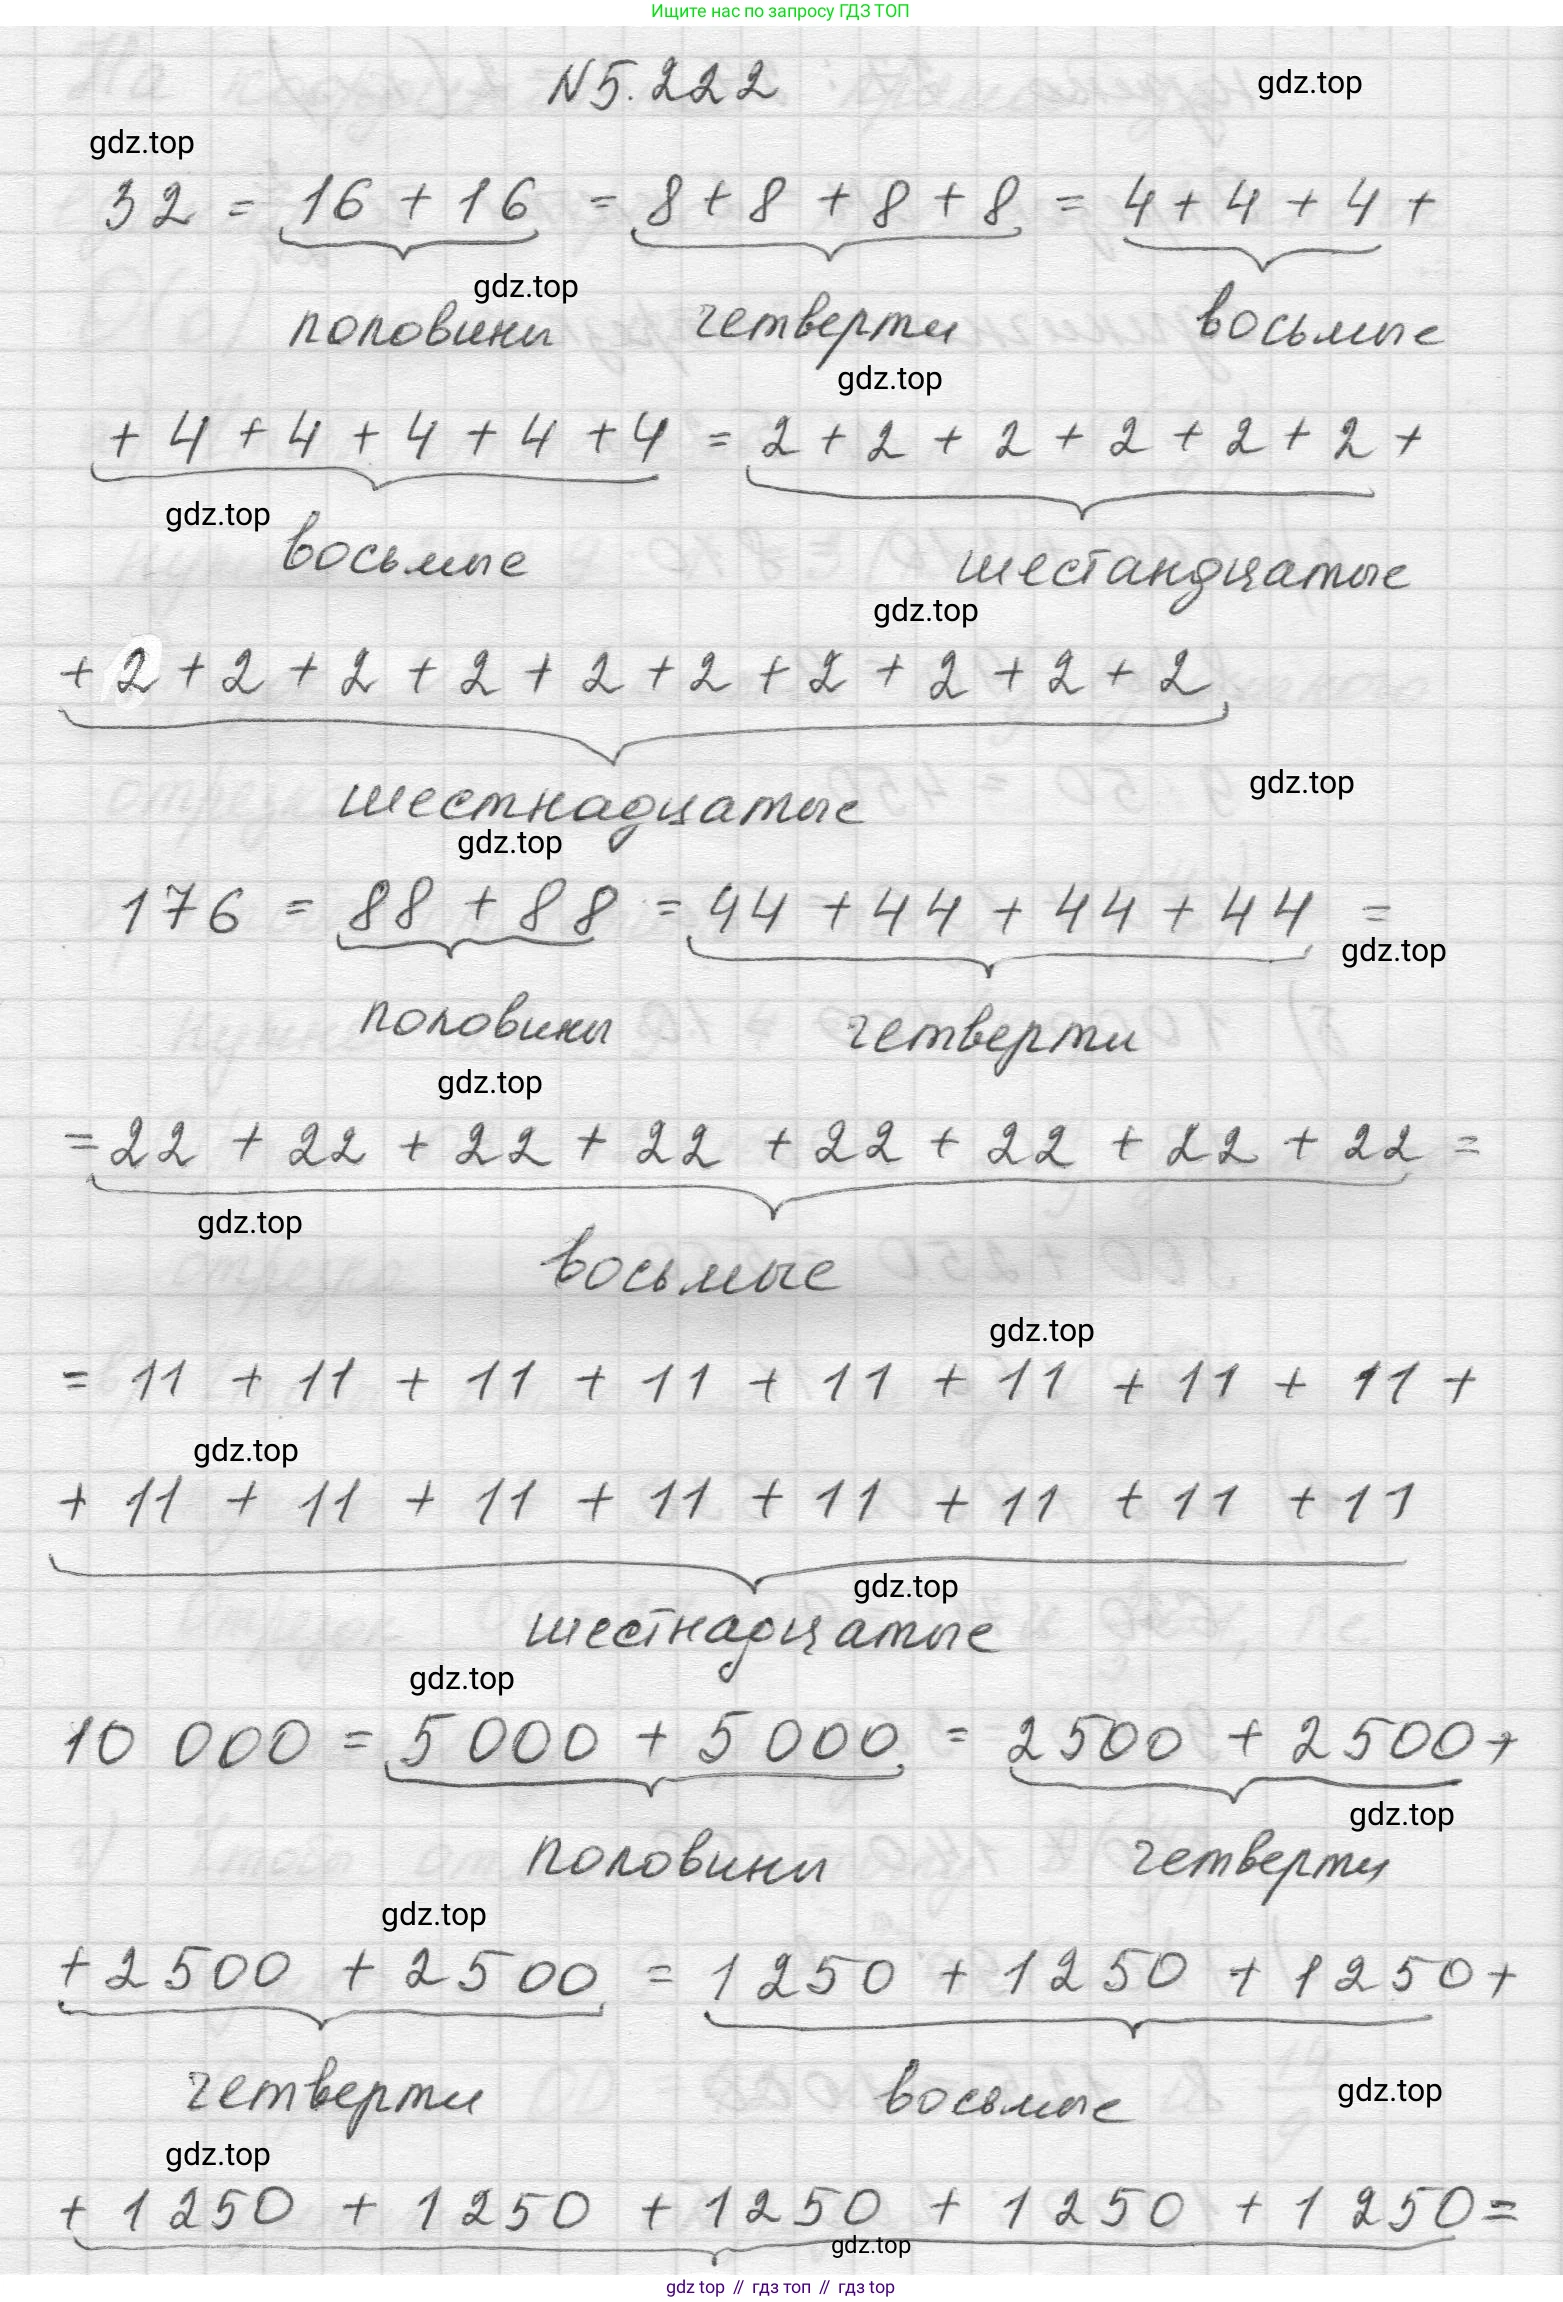 Ищите нас по запросу ГДЗ ТОП
N5.222
gdz.top
gdz.top
32 = 16 + 16 = 8 + 8 + 8 + 8 = 4 + 4 + 4 +
gdz.top
половины четверти восьмые
gdz.top
+ 4 + 4 + 4 + 4 + 4 = 2 + 2 + 2 + 2 + 2 + 2 +
gdz.top
восьмые шестандцатые
gdz.top
+ 2 + 2 + 2 + 2 + 2 + 2 + 2 + 2 + 2 + 2
gdz.top
шестнадцатые
gdz.top
176 = 88 + 88 = 44 + 44 + 44 + 44 =
gdz.top
половины четверти
gdz.top
= 22 + 22 + 22 + 22 + 22 + 22 + 22 + 22 =
gdz.top
восьмые
gdz.top
= 11 + 11 + 11 + 11 + 11 + 11 + 11 + 11 +
gdz.top
+ 11 + 11 + 11 + 11 + 11 + 11 + 11 + 11
gdz.top
шестнадцатые
gdz.top
10 000 = 5 000 + 5 000 = 2 500 + 2 500 +
gdz.top
половины четверти
gdz.top
+ 2 500 + 2 500 = 1 250 + 1 250 + 1 250 +
четверти восьмые
gdz.top
gdz.top
+ 1 250 + 1 250 + 1 250 + 1 250 + 1 250 =
gdz.top
gdz top // гдз топ // гдз top